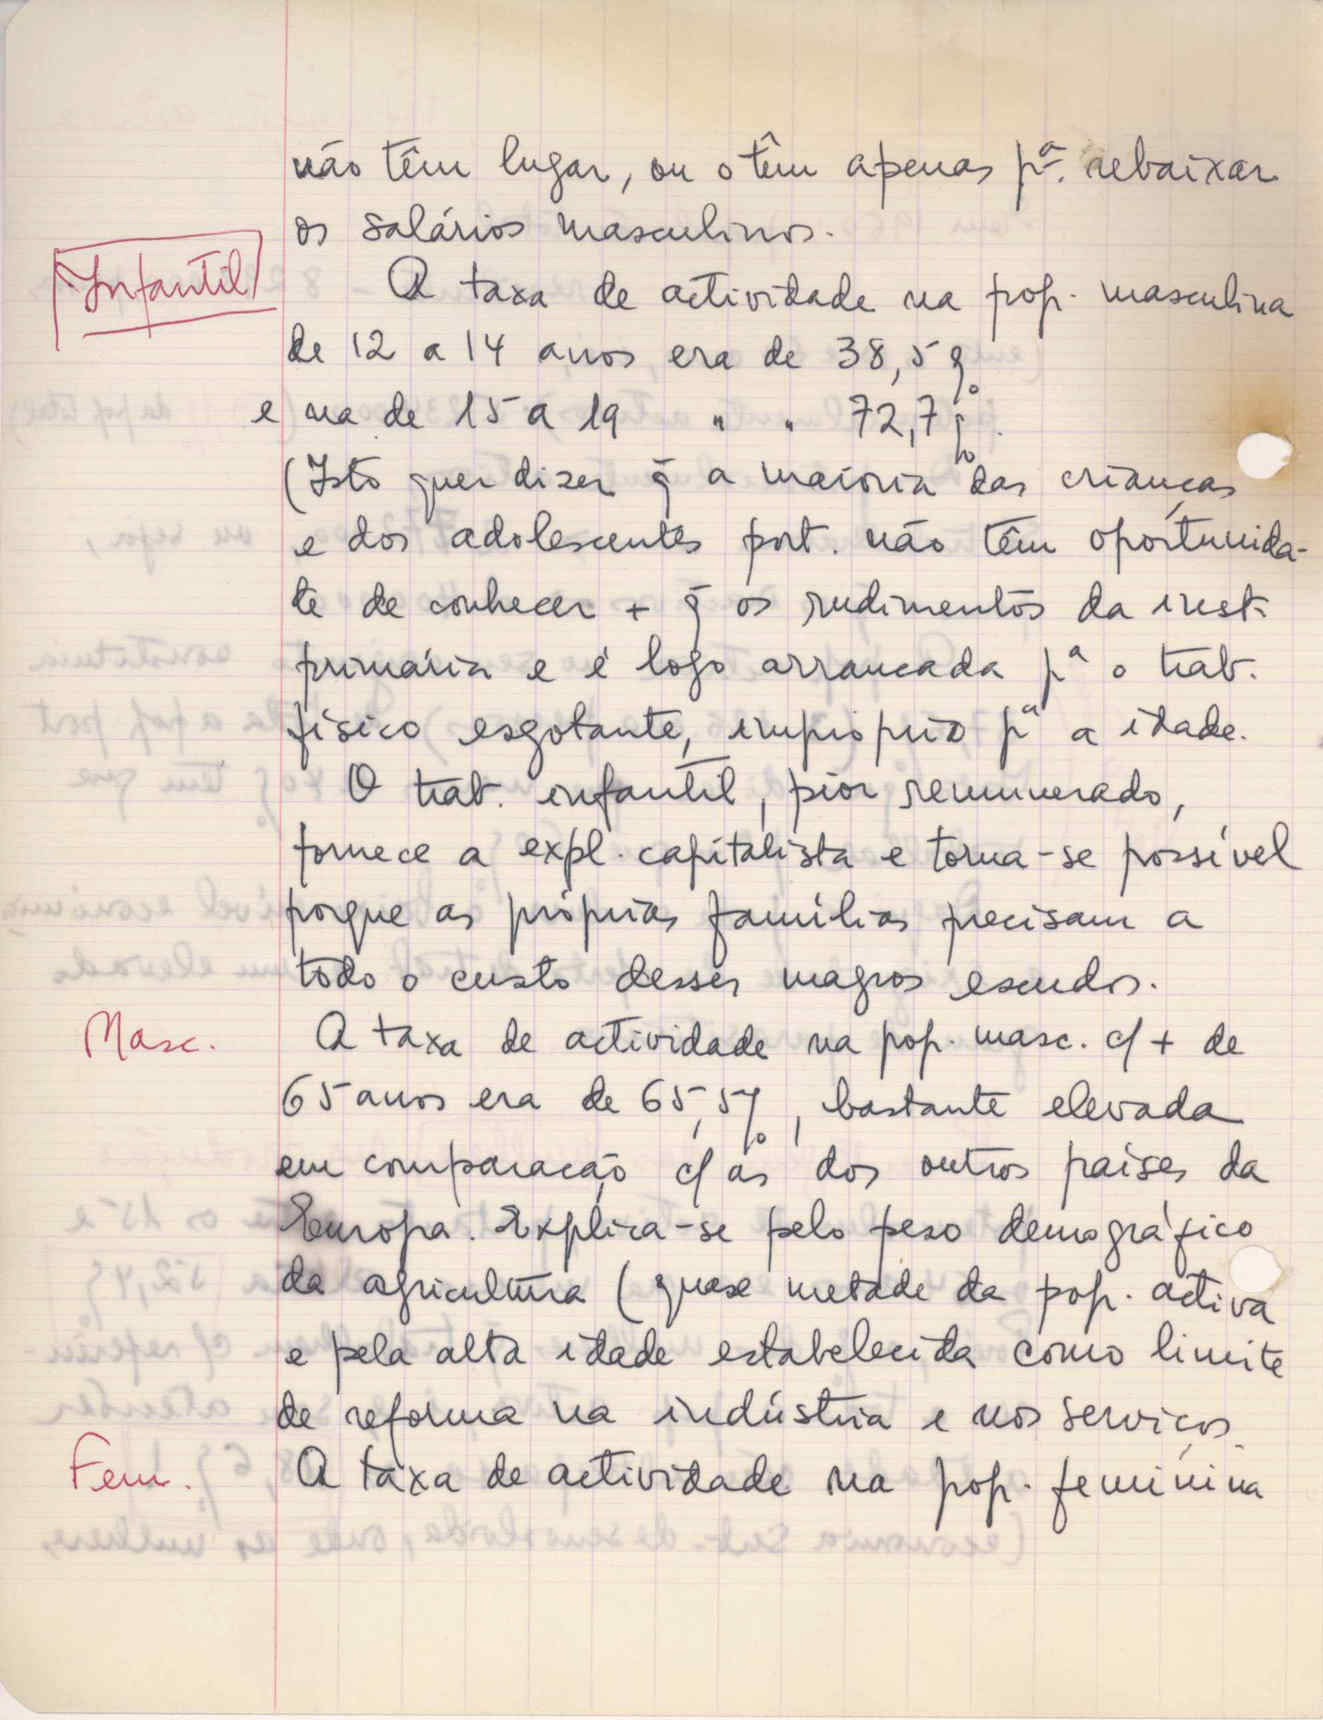 não têm lugar, ou o têm apenas pª. rebaixar
os salários masculinos.
Infantil
A taxa de actividade na pop. masculina
de 12 a 14 anos era de 38,5%
e na de 15 a 19 " " 72,7%.
(Isto quer dizer q̃ a maioria das crianças
e dos adolescentes port. não têm oportunida-
de de conhecer + q̃ os rudimentos da inst.
primária e é logo arrancada pª o trab.
físico esgotante, impróprio pª a idade.
O trab. infantil, pior remunerado,
fornece a expl. capitalista e torna-se possível
porque as próprias famílias precisam a
todo o custo desses magros escudos.
Masc.
A taxa de actividade na pop. masc. c/ + de
65 anos era de 65,5%, bastante elevada
em comparação c/ as dos outros países da
Europa. Explica-se pelo peso demográfico
da agricultura (quase metade da pop. activa
e pela alta idade estabelecida como limite
de reforma na indústria e nos serviços.
Fem.
A taxa de actividade na pop. feminina